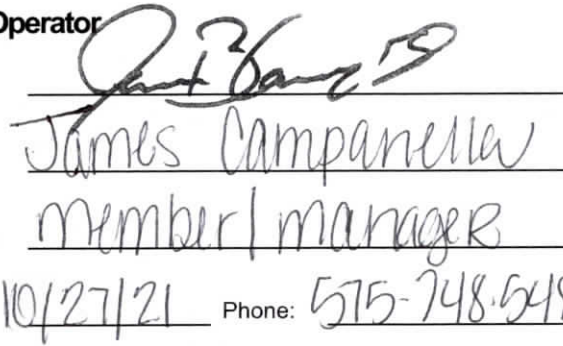 Operator
James Campanella
Member/manager
10/27/21 Phone: 575-748-549